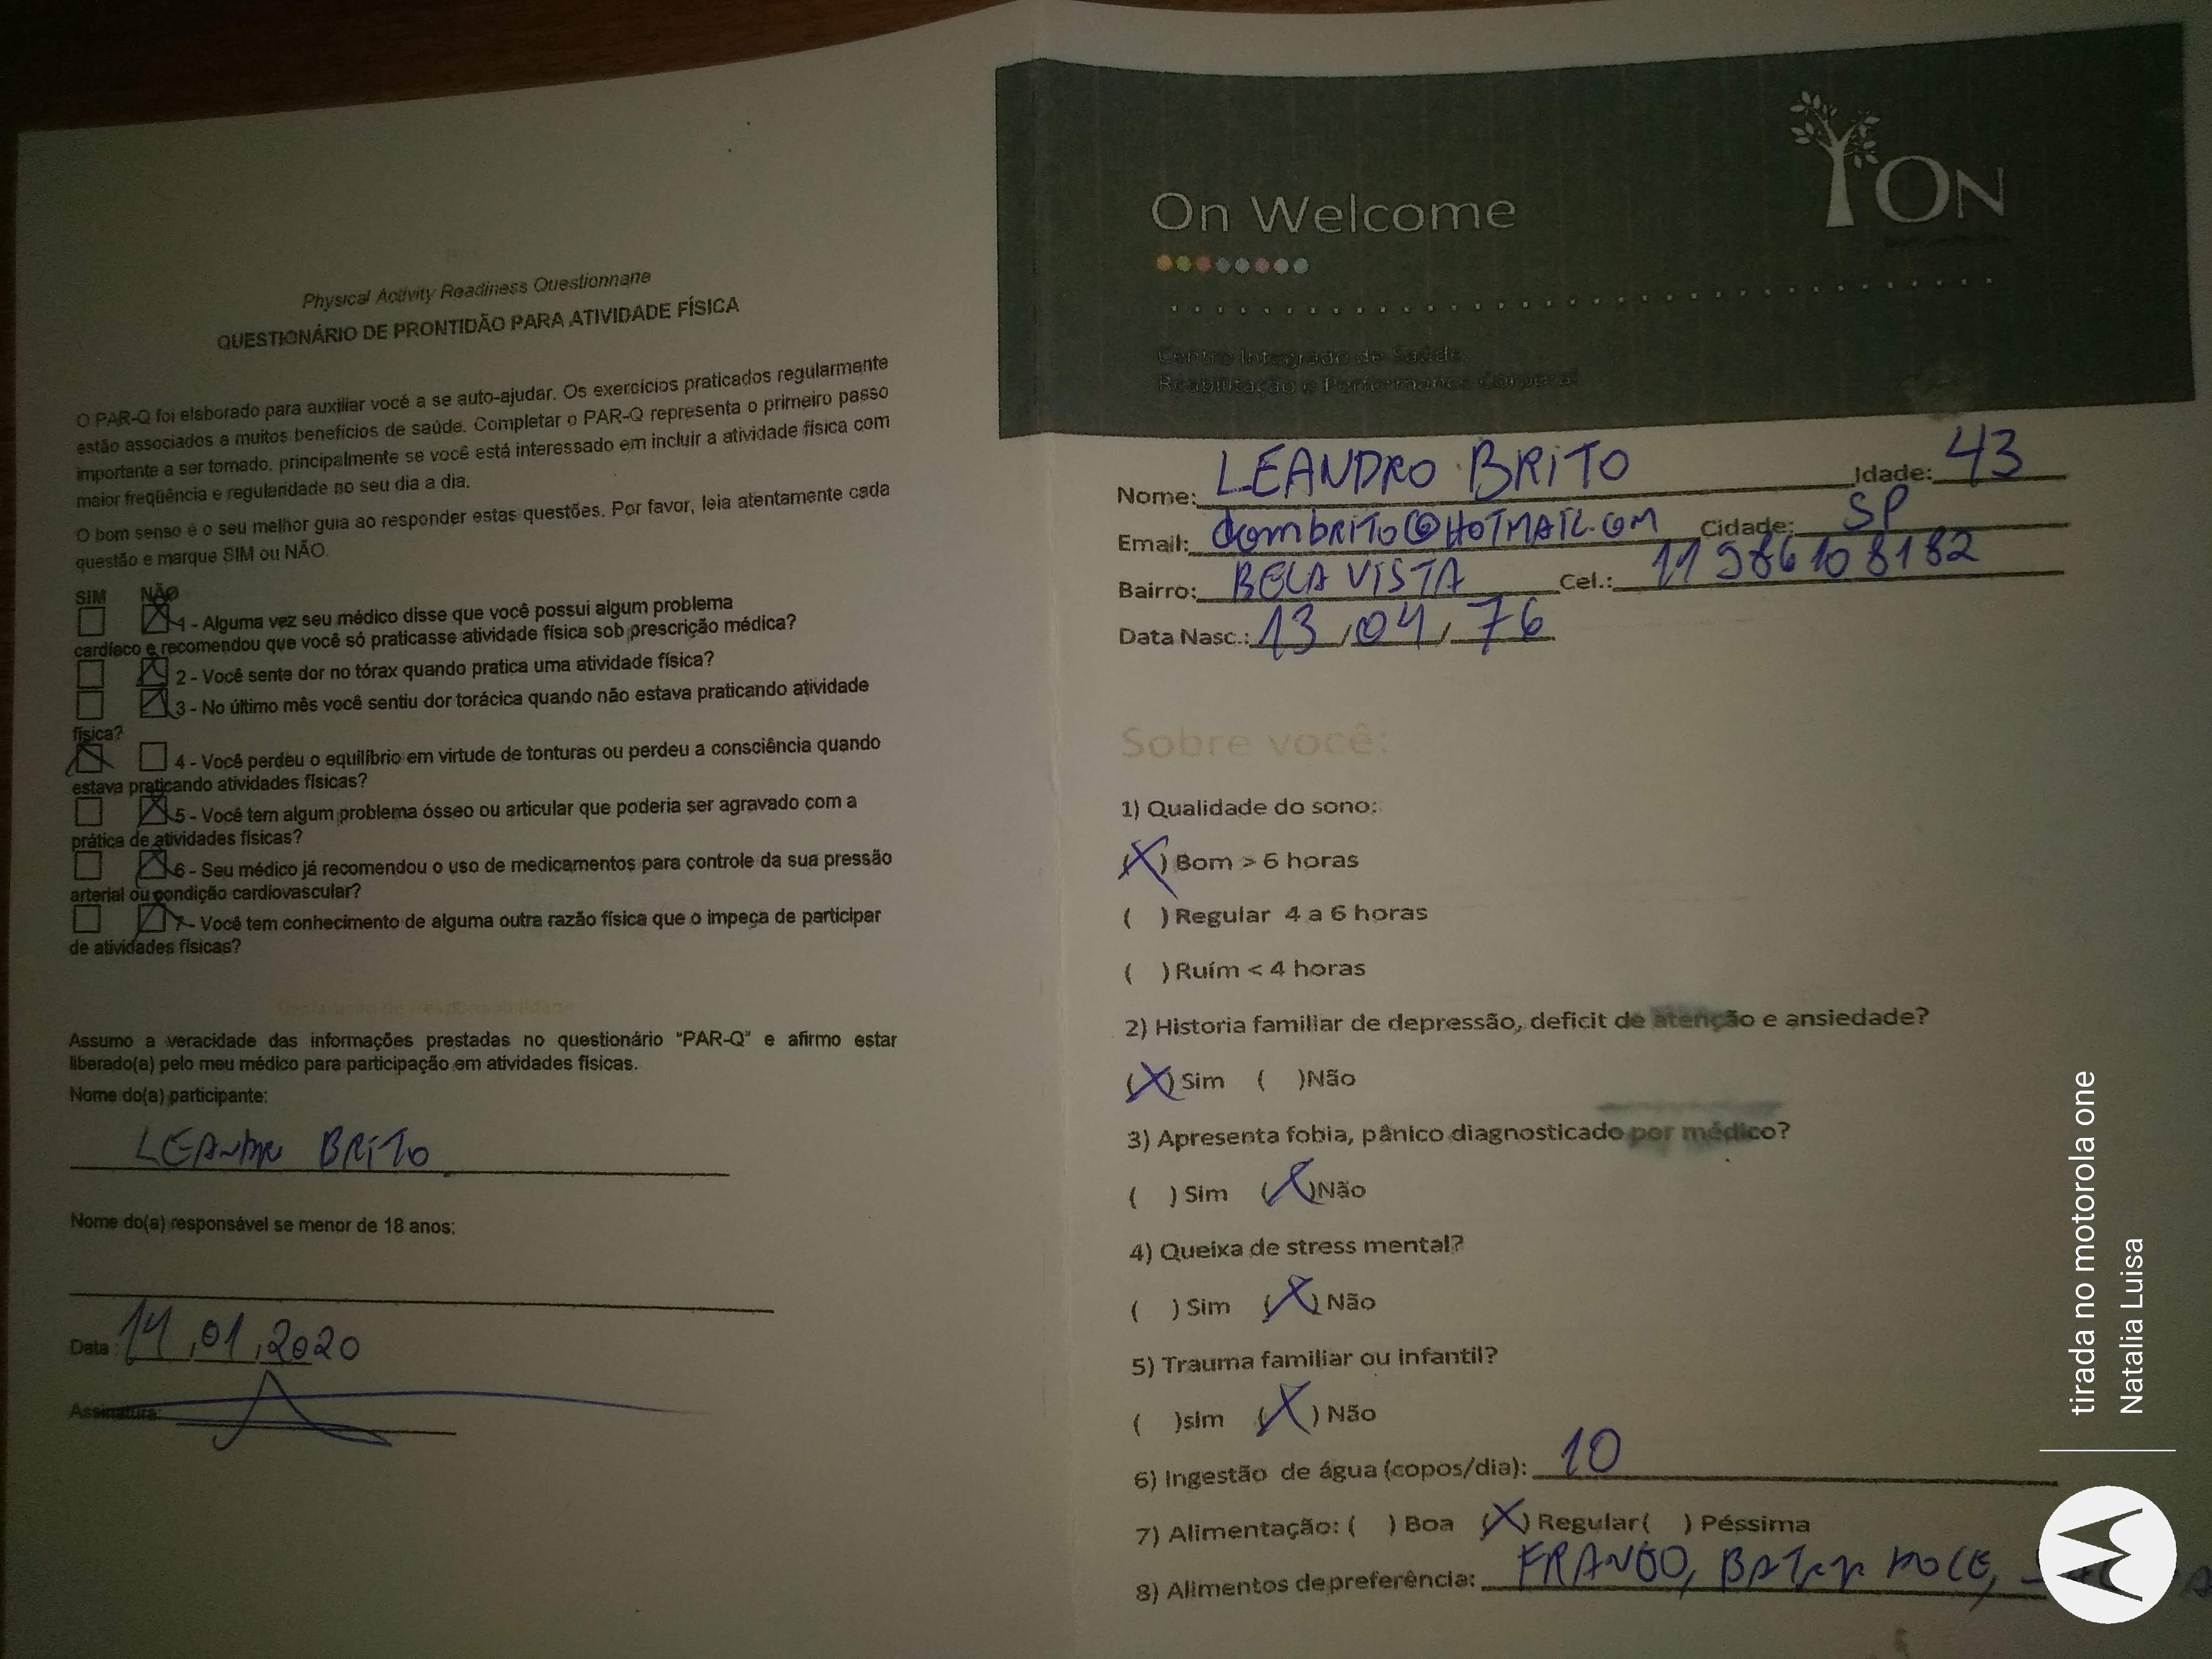 Physical Activity Readiness Questionnaire
QUESTIONÁRIO DE PRONTIDÃO PARA ATIVIDADE FÍSICA
O PAR-Q foi elaborado para auxiliar você a se auto-ajudar. Os exercícios praticados regularmente
estão associados a muitos benefícios de saúde. Completar o PAR-Q representa o primeiro passo
importante a ser tomado, principalmente se você está interessado em incluir a atividade física com
maior freqüência e regularidade no seu dia a dia.
O bom senso é o seu melhor guia ao responder estas questões. Por favor, leia atentamente cada
questão e marque SIM ou NÃO.
SIM NÃO
1 - Alguma vez seu médico disse que você possui algum problema
cardíaco e recomendou que você só praticasse atividade física sob prescrição médica?
2 - Você sente dor no tórax quando pratica uma atividade física?
3 - No último mês você sentiu dor torácica quando não estava praticando atividade
física?
4 - Você perdeu o equilíbrio em virtude de tonturas ou perdeu a consciência quando
estava praticando atividades físicas?
5 - Você tem algum problema ósseo ou articular que poderia ser agravado com a
prática de atividades físicas?
6 - Seu médico já recomendou o uso de medicamentos para controle da sua pressão
arterial ou condição cardiovascular?
7 - Você tem conhecimento de alguma outra razão física que o impeça de participar
de atividades físicas?
Assumo a veracidade das informações prestadas no questionário "PAR-Q" e afirmo estar
liberado(a) pelo meu médico para participação em atividades físicas.
Nome do(a) participante:
LEANDRO BRITO
Nome do(a) responsável se menor de 18 anos:
Data: 14, 01, 2020
Assinatura:
On Welcome
ON
Centro Integrado de Saúde,
Reabilitação e Performance Corporal
Nome: LEANDRO BRITO Idade: 43
Email: Cidade: SP
Bairro: BELA VISTA Cel.: 11 98610 8182
Data Nasc.: 13, 04, 76
Sobre você:
1) Qualidade do sono:
(X) Bom > 6 horas
( ) Regular 4 a 6 horas
( ) Ruím < 4 horas
2) Historia familiar de depressão, deficit de atenção e ansiedade?
(X) Sim ( )Não
3) Apresenta fobia, pânico diagnosticado por médico?
( ) Sim (X)Não
4) Queixa de stress mental?
( ) Sim (X) Não
5) Trauma familiar ou infantil?
( )sim (X) Não
6) Ingestão de água (copos/dia): 10
7) Alimentação: ( ) Boa (X) Regular( ) Péssima
8) Alimentos de preferência: FRANGO, BATATA DOCE,
tirada no motorola one
Natalia Luisa